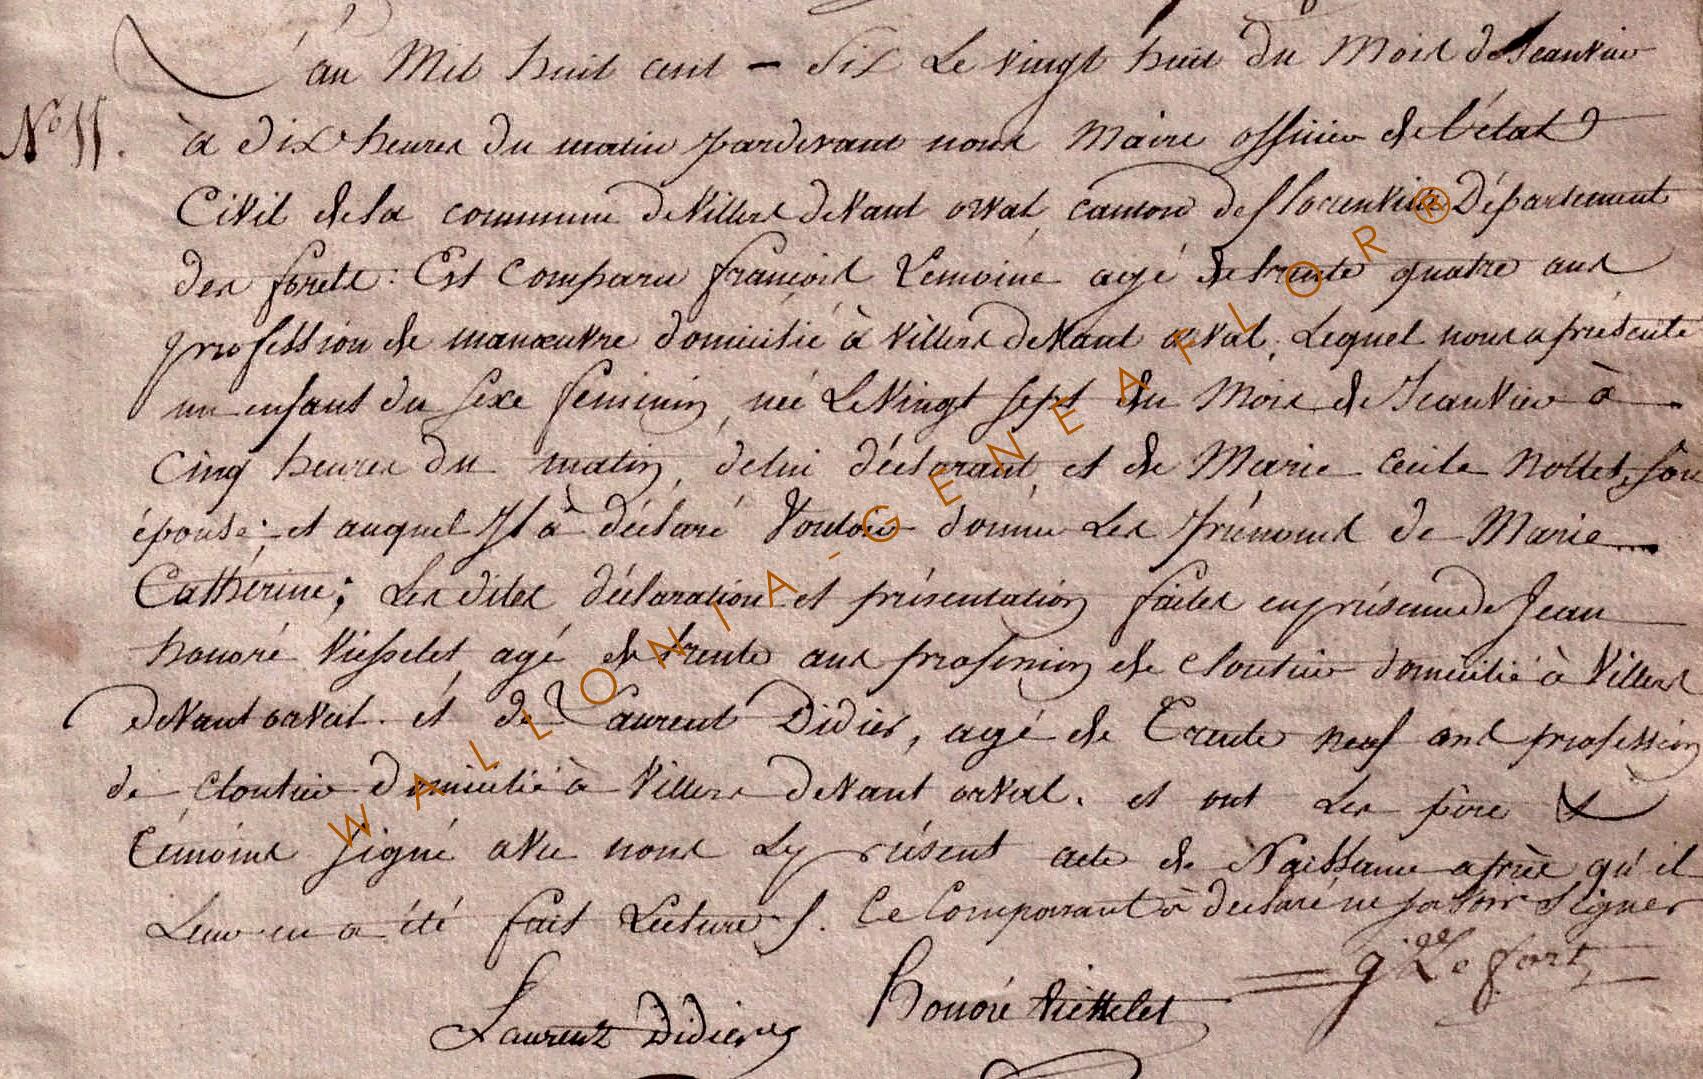 L'an Mil huit cent - Six Le vingt huit du Mois de Jeanvier
N° 11.
à dix heures du matin pardevant nous Maire officier de l'état
Civil de la commune de Villers devant orval, canton de florenville Département
des forets: Est Comparu françois Lemoine agé de trente quatre ans
profession de manœuvre domicilié à Villers devant orval, Lequel nous a présenté
un enfant du sexe feminin, née Le Vingt sept du Mois de Jeanvier à
Cinq heures du matin, de lui déclarant, et de Marie Cecile Nollet, son
épouse; et auquel Il à déclaré Vouloir donner Les Prénoms de Marie
Cathérine; Les dites déclaration et présentation faites en présence de Jean
honoré Viesselet agé de trente ans profession de cloutier domicilié à Villers
devant orval. et de Laurent Didier, agé de Trente neuf ans profession
de cloutier domicilié à Villers devant orval. et ont Les père &
Témoins signé avec nous Le présent acte de Naissance après qu'il
Leur en a été fait Lecture. Le Comparant à déclaré ne savoir Signer
Lefort
Laurent Didier
Honoré Viesselet
WALLONIA-GENEAFLOR®